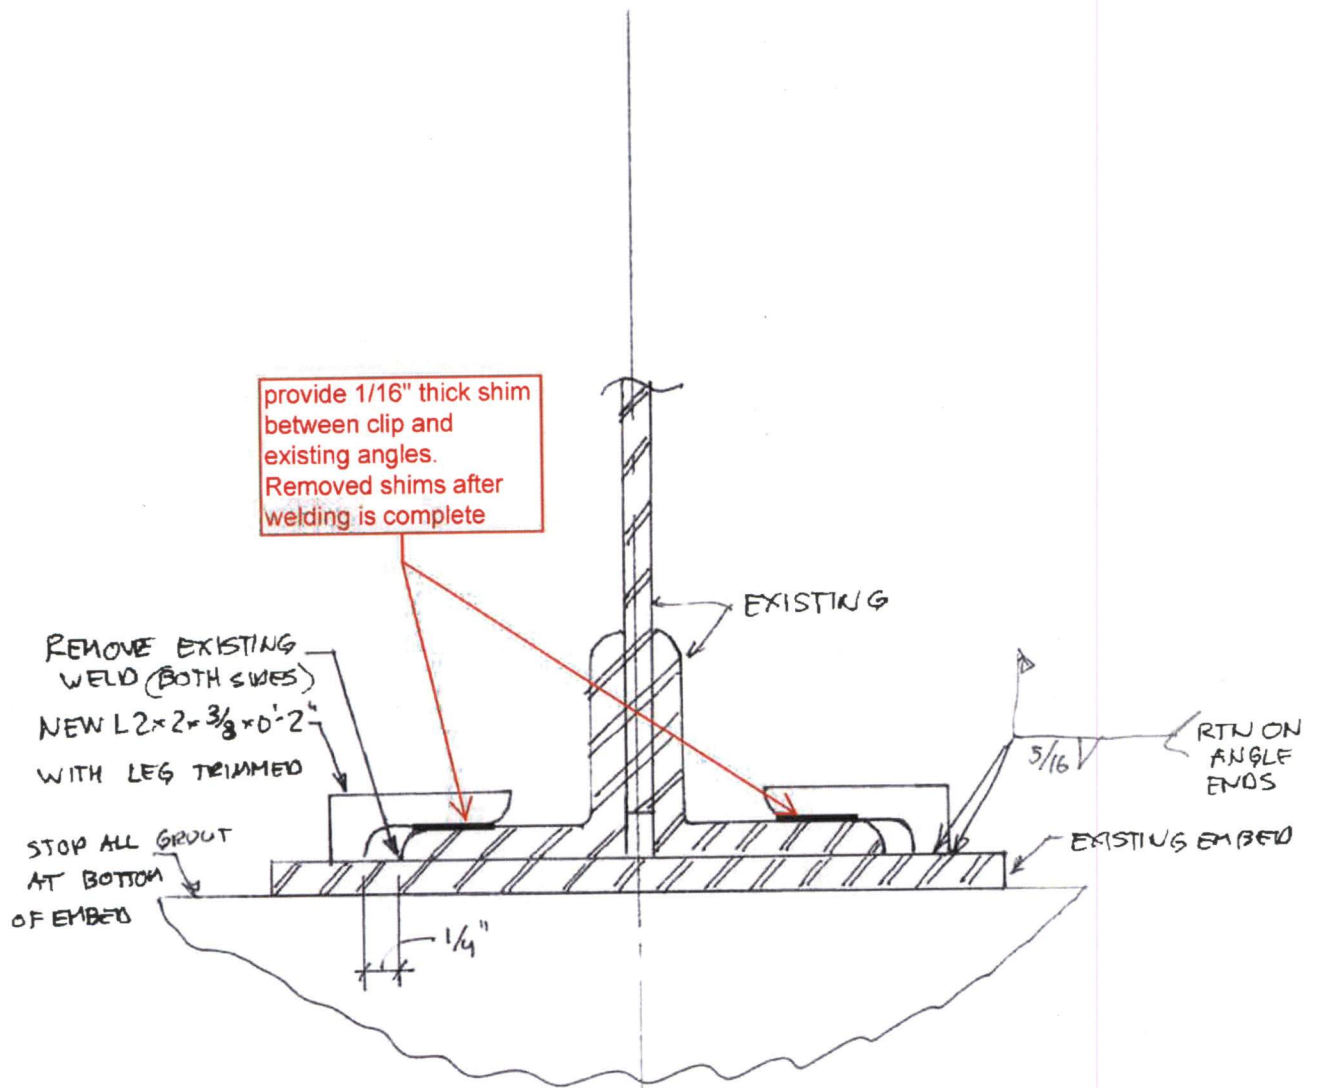 provide 1/16" thick shim
between clip and
existing angles.
Removed shims after
welding is complete
EXISTING
REMOVE EXISTING
WELD (BOTH SIDES)
NEW L 2 x 2 x 3/8 x 0'-2"
WITH LEG TRIMMED
5/16
RTN ON
ANGLE
ENDS
STOP ALL GROUT
AT BOTTOM
OF EMBED
EXISTING EMBED
1/4"